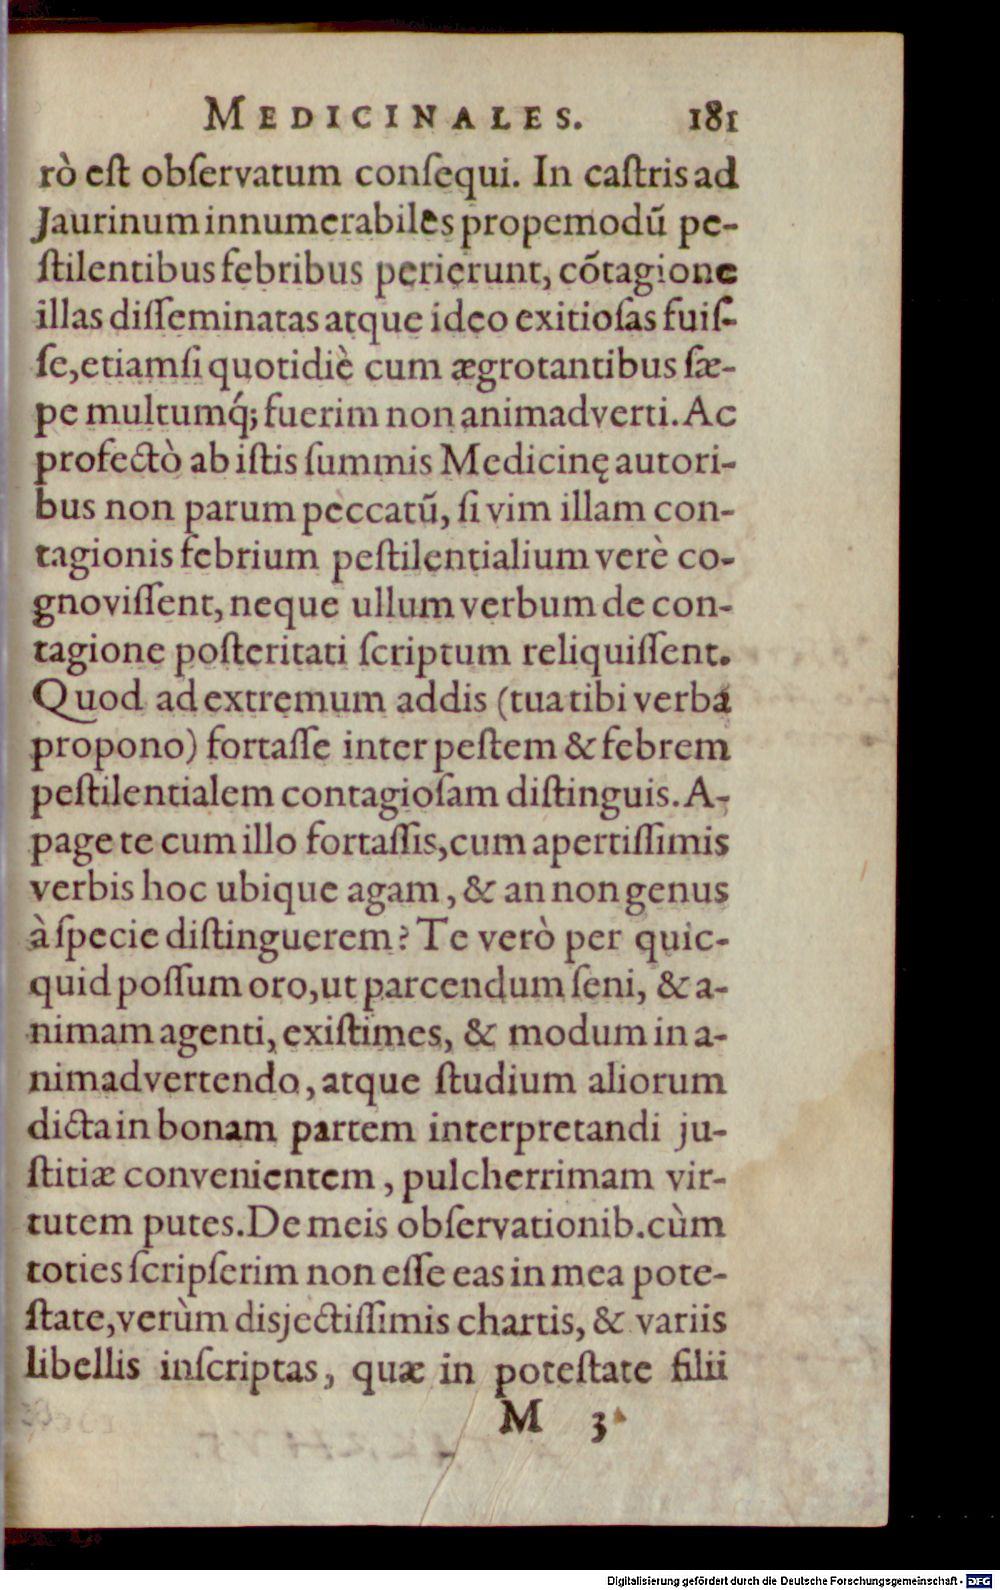 MEDICINALES. 181
rò eſt obſervatum conſequi. In caſtris ad
Jaurinum innumerabiles propemodū pe-
ſtilentibus febribus perierunt, cōtagione
illas diſſeminatas atque ideo exitioſas fuiſ-
ſe, etiamſi quotidiè cum ægrotantibus ſæ-
pe multumq́; fuerim non animadverti. Ac
profectò ab iſtis ſummis Medicinę autori-
bus non parum peccatū, ſi vim illam con-
tagionis febrium peſtilentialium verè co-
gnoviſſent, neque ullum verbum de con-
tagione poſteritati ſcriptum reliquiſſent.
Quod ad extremum addis (tua tibi verba
propono) fortaſſe inter peſtem & febrem
peſtilentialem contagioſam diſtinguis. A-
page te cum illo fortaſſis, cum apertiſſimis
verbis hoc ubique agam, & an non genus
à ſpecie diſtinguerem? Te verò per quic-
quid poſſum oro, ut parcendum ſeni, & a-
nimam agenti, exiſtimes, & modum in a-
nimadvertendo, atque ſtudium aliorum
dicta in bonam partem interpretandi ju-
ſtitiæ convenientem, pulcherrimam vir-
tutem putes. De meis obſervationib. cùm
toties ſcripſerim non eſſe eas in mea pote-
ſtate, verùm disjectiſſimis chartis, & variis
libellis inſcriptas, quæ in poteſtate filii
M 3
Digitalisierung gefördert durch die Deutsche Forschungsgemeinschaft - DFG